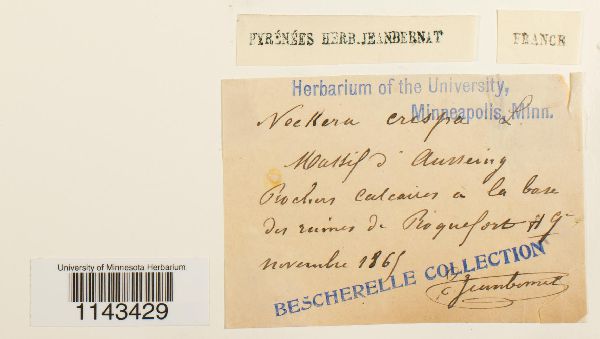 PYRÉNÉES HERB. JEANBERNAT
FRANCE
Herbarium of the University,
Minneapolis, Minn.
Neckera crispa L.
Massif d'Ausseing
Rochers calcaires à la base
des ruines de Roquefort
novembre 186
BESCHERELLE COLLECTION
E Jeanbernat
University of Minnesota Herbarium
1143429